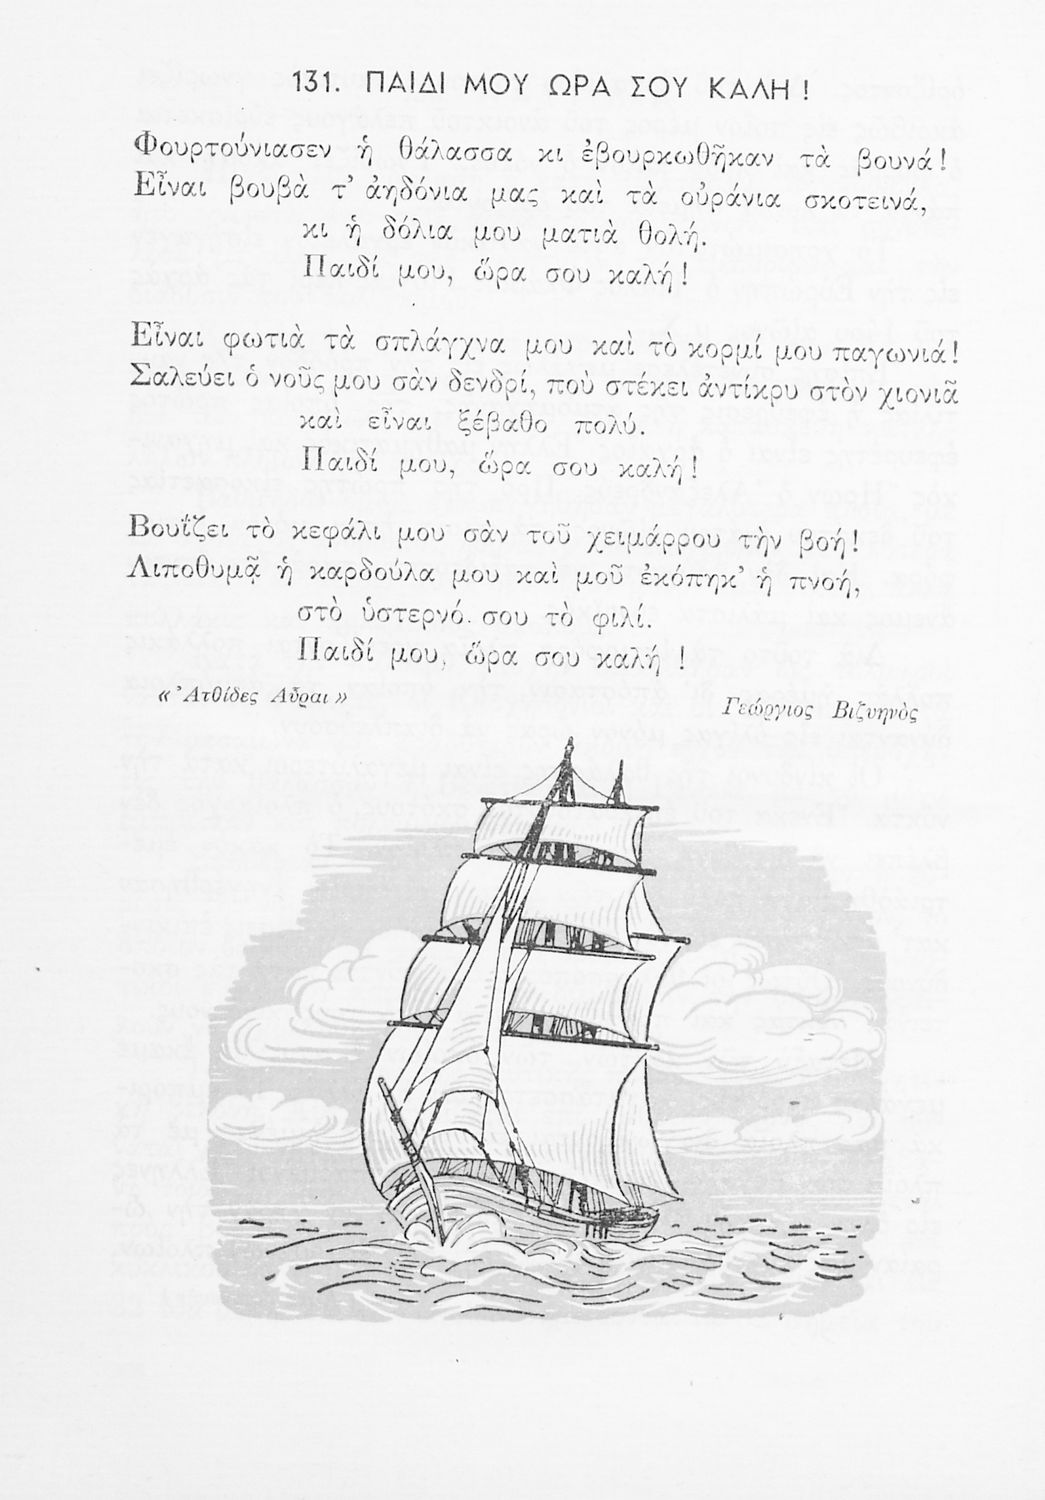 131. ΠΑΙΔΙ ΜΟΥ ΩΡΑ ΣΟΥ ΚΑΛΗ !
Φουρτούνιασεν ἡ θάλασσα κι ἐβουρκωθῆκαν τὰ βουνά!
Εἶναι βουβὰ τ’ ἀηδόνια μας καὶ τὰ οὐράνια σκοτεινά,
κι ἡ δόλια μου ματιὰ θολή.
Παιδί μου, ὥρα σου καλή!
Εἶναι φωτιὰ τὰ σπλάγχνα μου καὶ τὸ κορμί μου παγωνιά!
Σαλεύει ὁ νοῦς μου σὰν δενδρί, ποὺ στέκει ἀντίκρυ στὸν χιονιᾶ
καὶ εἶναι ξέβαθο πολύ.
Παιδί μου, ὥρα σου καλή!
Βουΐζει τὸ κεφάλι μου σὰν τοῦ χειμάρρου τὴν βοή!
Λιποθυμᾷ ἡ καρδούλα μου καὶ μοῦ ἐκόπηκ’ ἡ πνοή,
στὸ ὑστερνό. σου τὸ φιλί.
Παιδί μου, ὥρα σου καλή !
«’Ατθίδες Αὖραι»
Γεώργιος Βιζυηνὸς